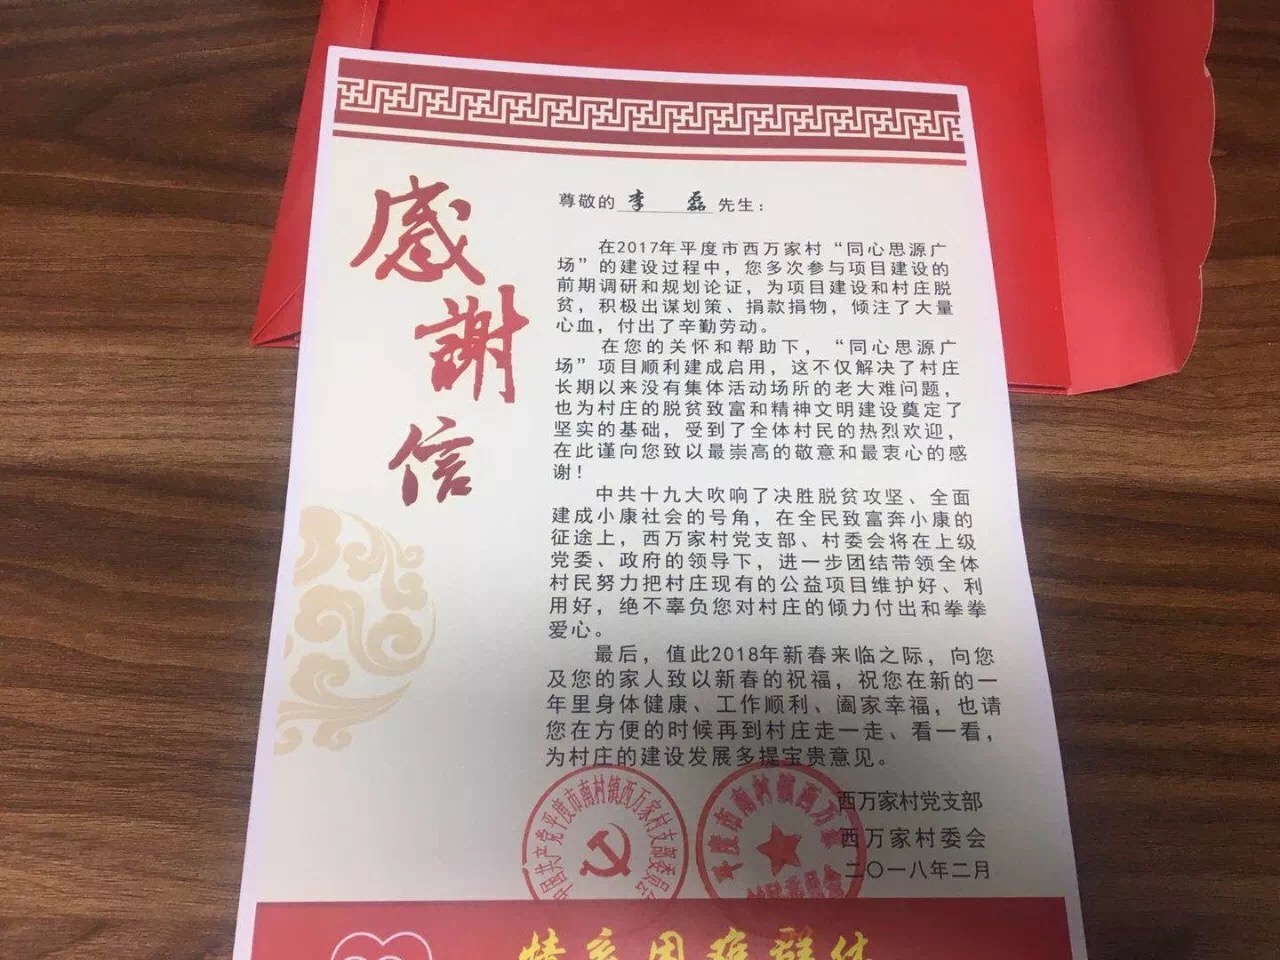 感謝信
尊敬的 李 磊 先生：
在2017年平度市西万家村“同心思源广
场”的建设过程中，您多次参与项目建设的
前期调研和规划论证，为项目建设和村庄脱
贫，积极出谋划策、捐款捐物，倾注了大量
心血，付出了辛勤劳动。
在您的关怀和帮助下，“同心思源广
场”项目顺利建成启用，这不仅解决了村庄
长期以来没有集体活动场所的老大难问题，
也为村庄的脱贫致富和精神文明建设奠定了
坚实的基础，受到了全体村民的热烈欢迎，
在此谨向您致以最崇高的敬意和最衷心的感
谢！
中共十九大吹响了决胜脱贫攻坚、全面
建成小康社会的号角，在全民致富奔小康的
征途上，西万家村党支部、村委会将在上级
党委、政府的领导下，进一步团结带领全体
村民努力把村庄现有的公益项目维护好、利
用好，绝不辜负您对村庄的倾力付出和拳拳
爱心。
最后，值此2018年新春来临之际，向您
及您的家人致以新春的祝福，祝您在新的一
年里身体健康、工作顺利、阖家幸福，也请
您在方便的时候再到村庄走一走、看一看，
为村庄的建设发展多提宝贵意见。
西万家村党支部
西万家村委会
二〇一八年二月
中国共产党平度市南村镇西万家村支部委员会
平度市南村镇西万家